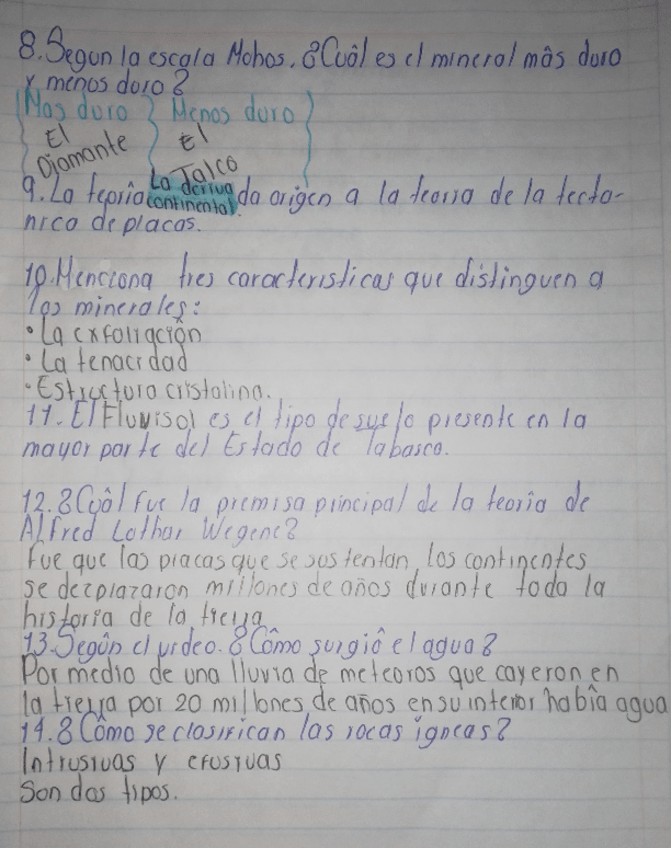 8. Segun la escala Mohos, ¿Cuál es el mineral más duro
y menos duro?
Mas duro Menos duro
El Diamante El Talco
9. La teoria La deriva continental da origen a la teoria de la tecto-
nica de placas.
10. Menciona tres caracteristicas que distinguen a
los minerales:
• La exfoliación
• La tenacidad
• Estructura cristalina.
11. El Fluvisol es el tipo de suelo presente en la
mayor parte del Estado de Tabasco.
12. ¿Cuál fue la premisa principal de la teoria de
Alfred Lothar Wegene?
Fue que las placas que se sustentan, los continentes
se desplazaron millones de años durante toda la
historia de la tierra
13. Según el video. ¿Cómo surgió el agua?
Por medio de una lluvia de meteoros que cayeron en
la tierra por 20 millones de años en su interior había agua
14. ¿Cómo se clasifican las rocas ígneas?
Intrusivas y efusivas
Son dos tipos.